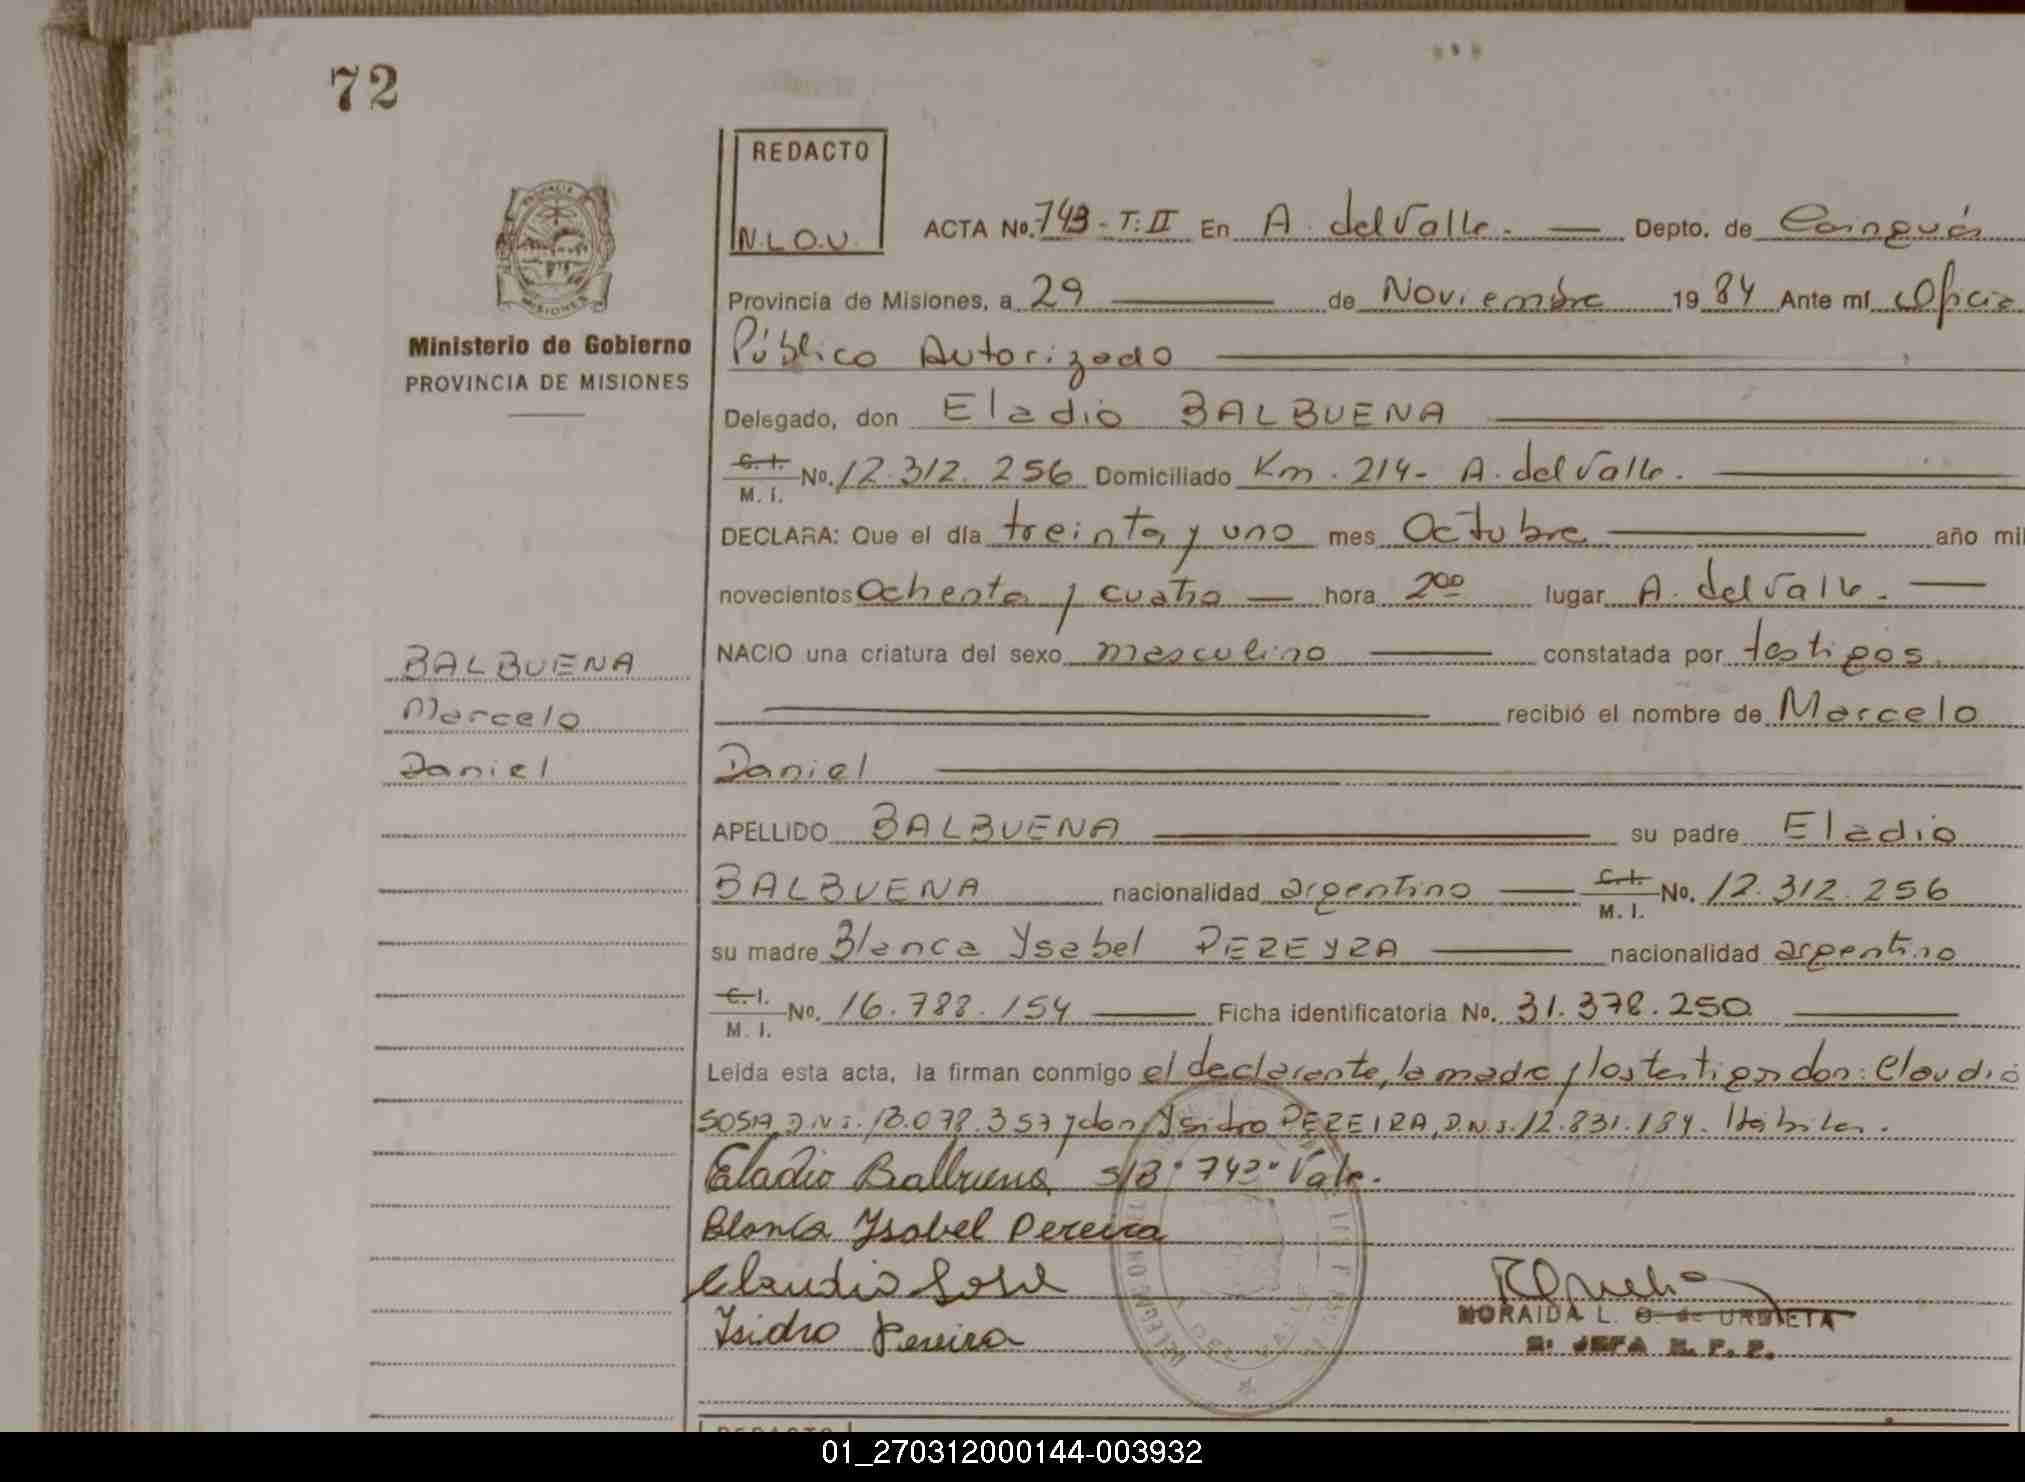 72
REDACTO
N.L.O.U.
ACTA No. 743 - T: II En A. del Valle. Depto. de Cainguás
Provincia de Misiones, a 29 de Noviembre 1984 Ante mí Oficia
Público Autorizado
Ministerio de Gobierno
PROVINCIA DE MISIONES
Delegado, don Eladio BALBUENA
C. I. M. I. No. 12.312.256 Domiciliado Km. 214- A. del Valle.
DECLARA: Que el día treinta y uno mes Octubre año mil
novecientos Ochenta y cuatro hora 2 00 lugar A. del Valle.
NACIO una criatura del sexo masculino constatada por testigos.
recibió el nombre de Marcelo
Daniel
BALBUENA
Marcelo
Daniel
APELLIDO BALBUENA su padre Eladio
BALBUENA nacionalidad argentino C. I. M. I. No. 12.312.256
su madre Blanca Ysabel PEREYRA nacionalidad argentino
C. I. M. I. No. 16.788.154 Ficha identificatoria No. 31.378.250
Leída esta acta, la firman conmigo el declarante, la madre y los testigos don: Claudio
SOSA, D.N.I. 13.078.357 y don Ysidro PEREIRA, D.N.I. 12.831.184. Hábiles.
Eladio Balbuena S/B. 743. Vale.
Blanca Ysabel Pereira
Claudio Sosa
Isidro Pereira
NORAIDA L. O. de URBIETA
JEFA R. P. P.
REDACTO
01_270312000144-003932